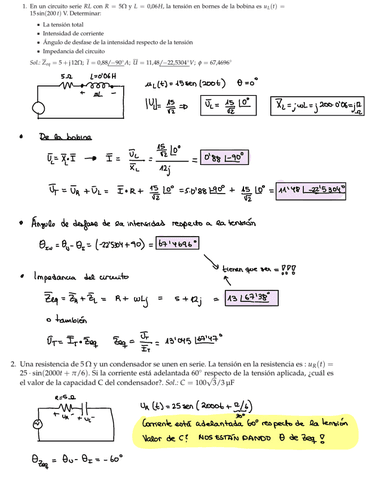 1. En un circuito serie RL con R = 5Ω y L = 0,06H, la tensión en bornes de la bobina es u_L(t) =
15 sin(200 t) V. Determinar:
• La tensión total
• Intensidad de corriente
• Ángulo de desfase de la intensidad respecto de la tensión
• Impedancia del circuito
Sol.: Z̅eq = 5 + j12Ω; I̅ = 0,88/−90° A; U̅ = 11,48/−22,5304° V; φ = 67,4696°
5Ω L=0'06H
+ uL -
uL(t) = 15 sen(200t) θ = 0°
|U| = 15/√2 ⇒ U̅L = 15/√2 |0° X̅L = jωL = j200·0'06 = j
• De la bobina
U̅L = X̅L·I̅ → I̅ = U̅L/X̅L = 15/√2 |0° / 12j = 0'88 |-90°
U̅T = U̅R + U̅L = I̅·R + 15/√2 |0° = 5·0'88 |-90° + 15/√2 |0° = 11'48 |-22'5304°
• Ángulo de desfase de la intensidad respecto a la tensión
θ = θU - θI = (-22'5304 + 90) = 67'4696°
tienen que ser = !!!
• Impedancia del circuito
Z̅eq = Z̅R + Z̅L = R + ωLj = 5 + 12j = 13 |67'38°
o también
U̅T = I̅T · Z̅eq Z̅eq = U̅T/I̅T = 13'045 |67'47°
2. Una resistencia de 5 Ω y un condensador se unen en serie. La tensión en la resistencia es : u_R(t) =
25 · sin(2000t + π/6). Si la corriente está adelantada 60° respecto de la tensión aplicada, ¿cuál es
el valor de la capacidad C del condensador?. Sol.: C = 100√3/3 μF
R=5Ω
+ uR -
uR(t) = 25 sen(2000t + π/6)
30°
Corriente está adelantada 60° respecto de la tensión
Valor de C? NOS ESTÁN DANDO θ de Zeq!
θZeq = θU - θI = -60°